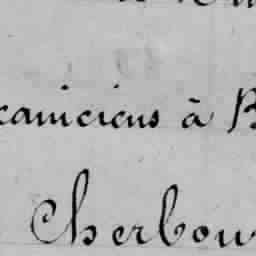 caniciens à B
Cherbou